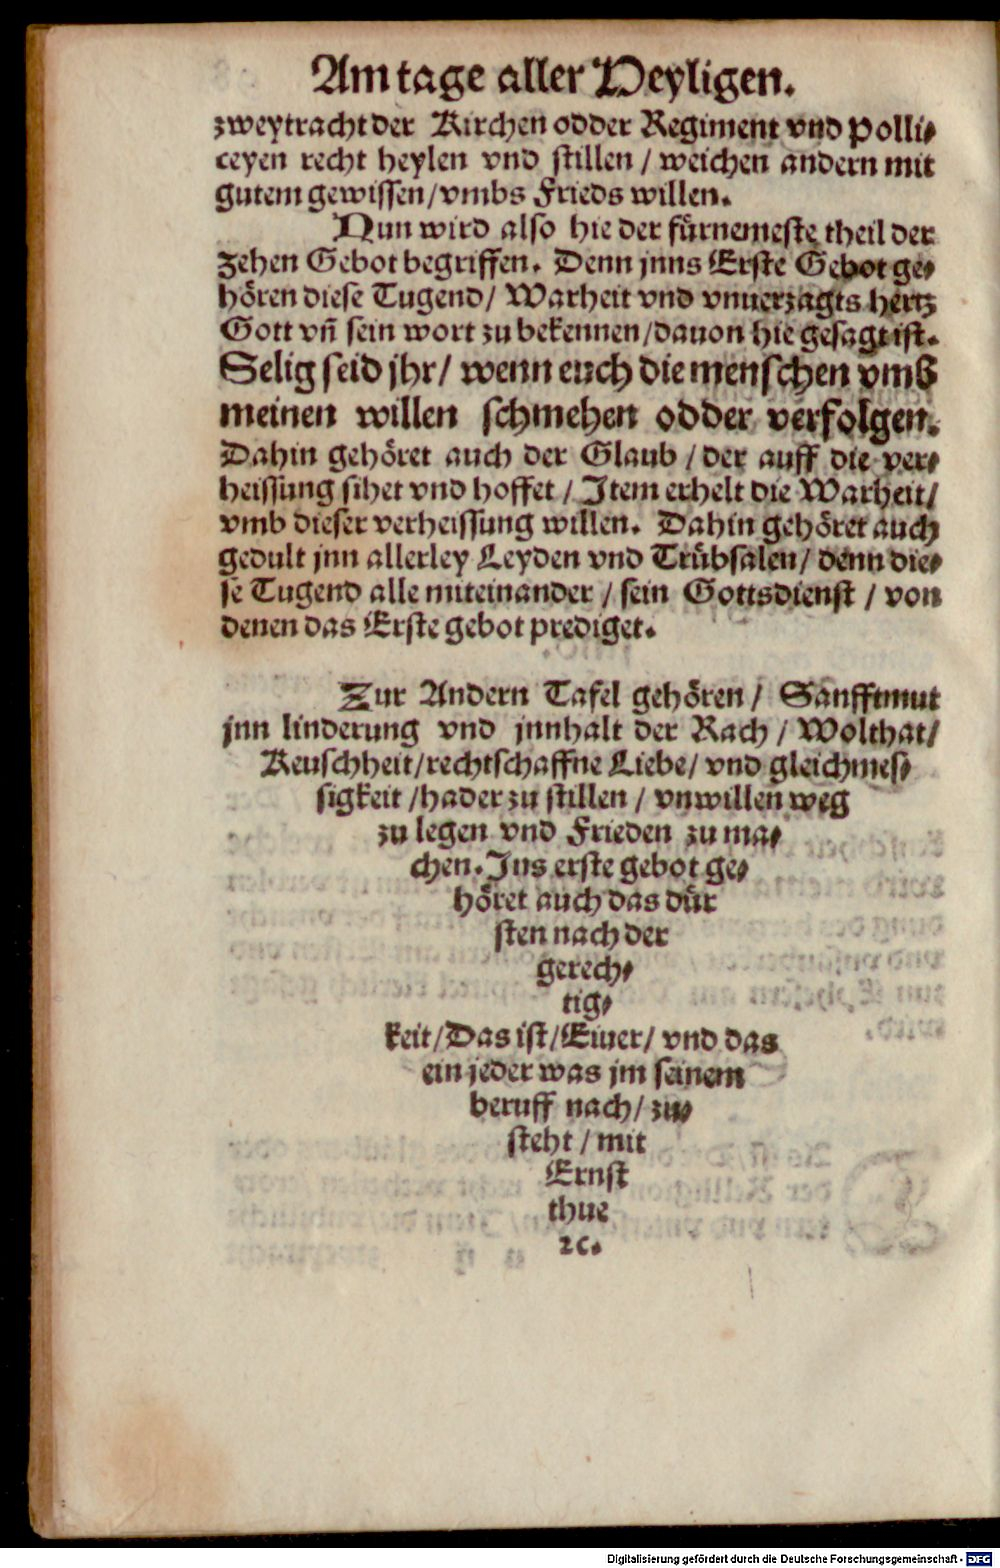 Am tage aller Heyligen.
zweytracht der Kirchen odder Regiment vnd Polli⸗
ceyen recht heylen vnd stillen / weichen andern mit
gutem gewissen/vmbs Frieds willen.
Nun wird also hie der fürnemeste theil der
Zehen Gebot begriffen. Denn jnns Erste Gebot ge⸗
hören diese Tugend/ Warheit vnd vnuerzagts hertz
Gott vñ sein wort zu bekennen/dauon hie gesagt ist.
Selig seid jhr/ wenn euch die menschen vmb
meinen willen schmehen odder verfolgen.
Dahin gehöret auch der Glaub / der auff die ver⸗
heissung sihet vnd hoffet / Item erhelt die Warheit/
vmb dieser verheissung willen. Dahin gehöret auch
gedult jnn allerley Leyden vnd Trübsalen/ denn die⸗
se Tugend alle miteinander / sein Gottsdienst / von
denen das Erste gebot prediget.
Zur Andern Tafel gehören / Sanfftmut
jnn linderung vnd jnnhalt der Rach / Wolthat/
Keuschheit/rechtschaffne Liebe/ vnd gleichmes⸗
sigkeit /hader zu stillen / vnwillen weg
zu legen vnd Frieden zu ma⸗
chen. Ins erste gebot ge⸗
höret auch das dür
sten nach der
gerech⸗
tig⸗
keit/Das ist/Eiuer/ vnd das
ein jeder was jm seinem
beruff nach/ zu⸗
steht / mit
Ernst
thue
ꝛc.
Digitalisierung gefördert durch die Deutsche Forschungsgemeinschaft - DFG